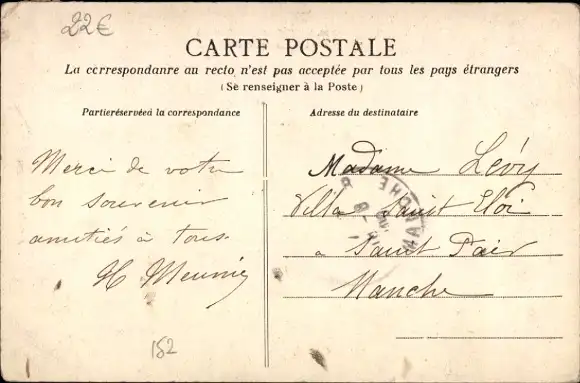 22€
CARTE POSTALE
La correspondanre au recto n'est pas acceptée par tous les pays étrangers
(Se renseigner à la Poste)
Partieréservéeà la correspondance
Adresse du destinataire
Merci de votre
bon souvenir
amitiés à tous.
H Meunier
152
Madame Lévy
Villa Saint Eloi
à Saint Pair
Manche
MANCHE